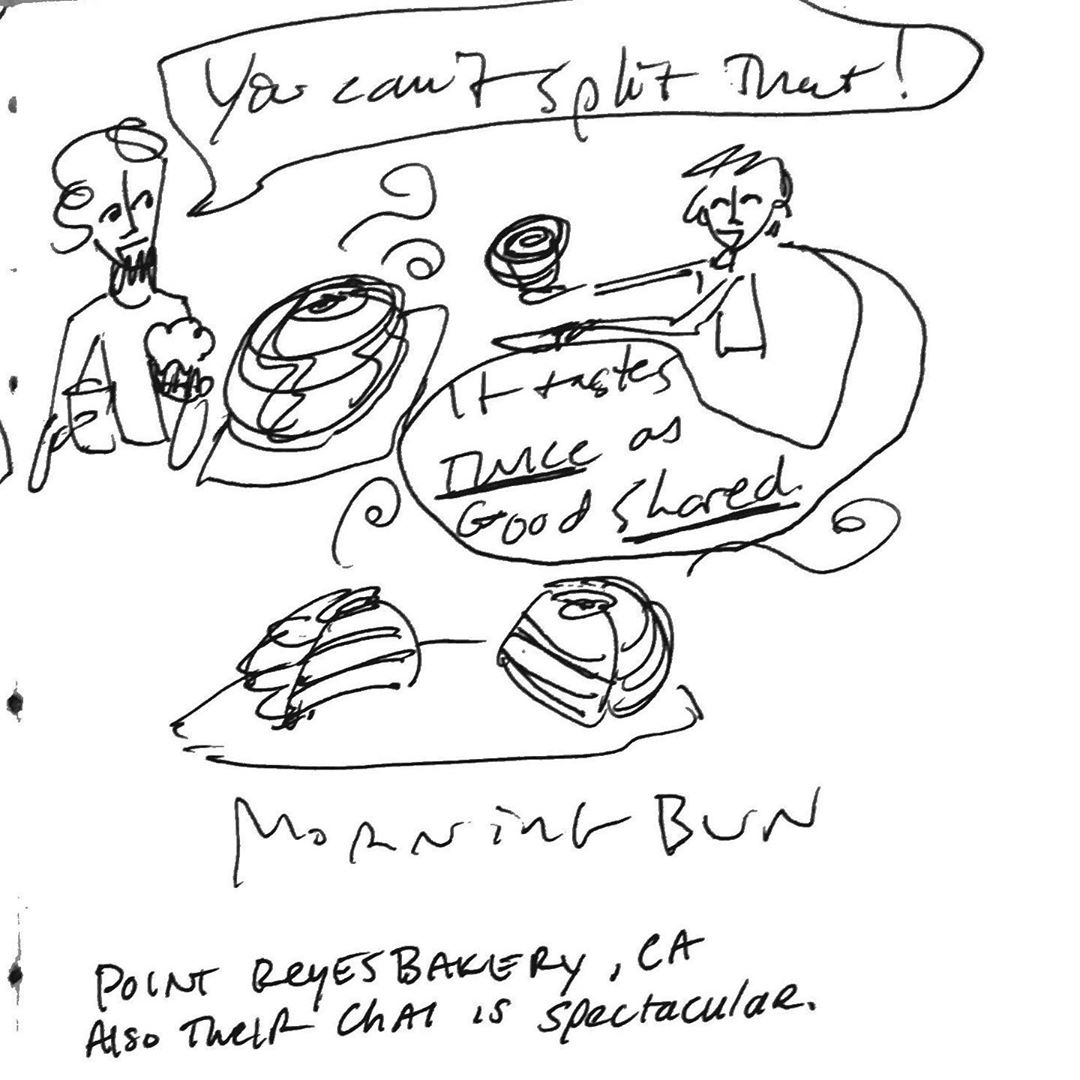 You can't split that!
It tastes
TWICE as
Good shared.
MORNING BUN
POINT REYES BAKERY, CA
Also Their ChAI is spectacular.